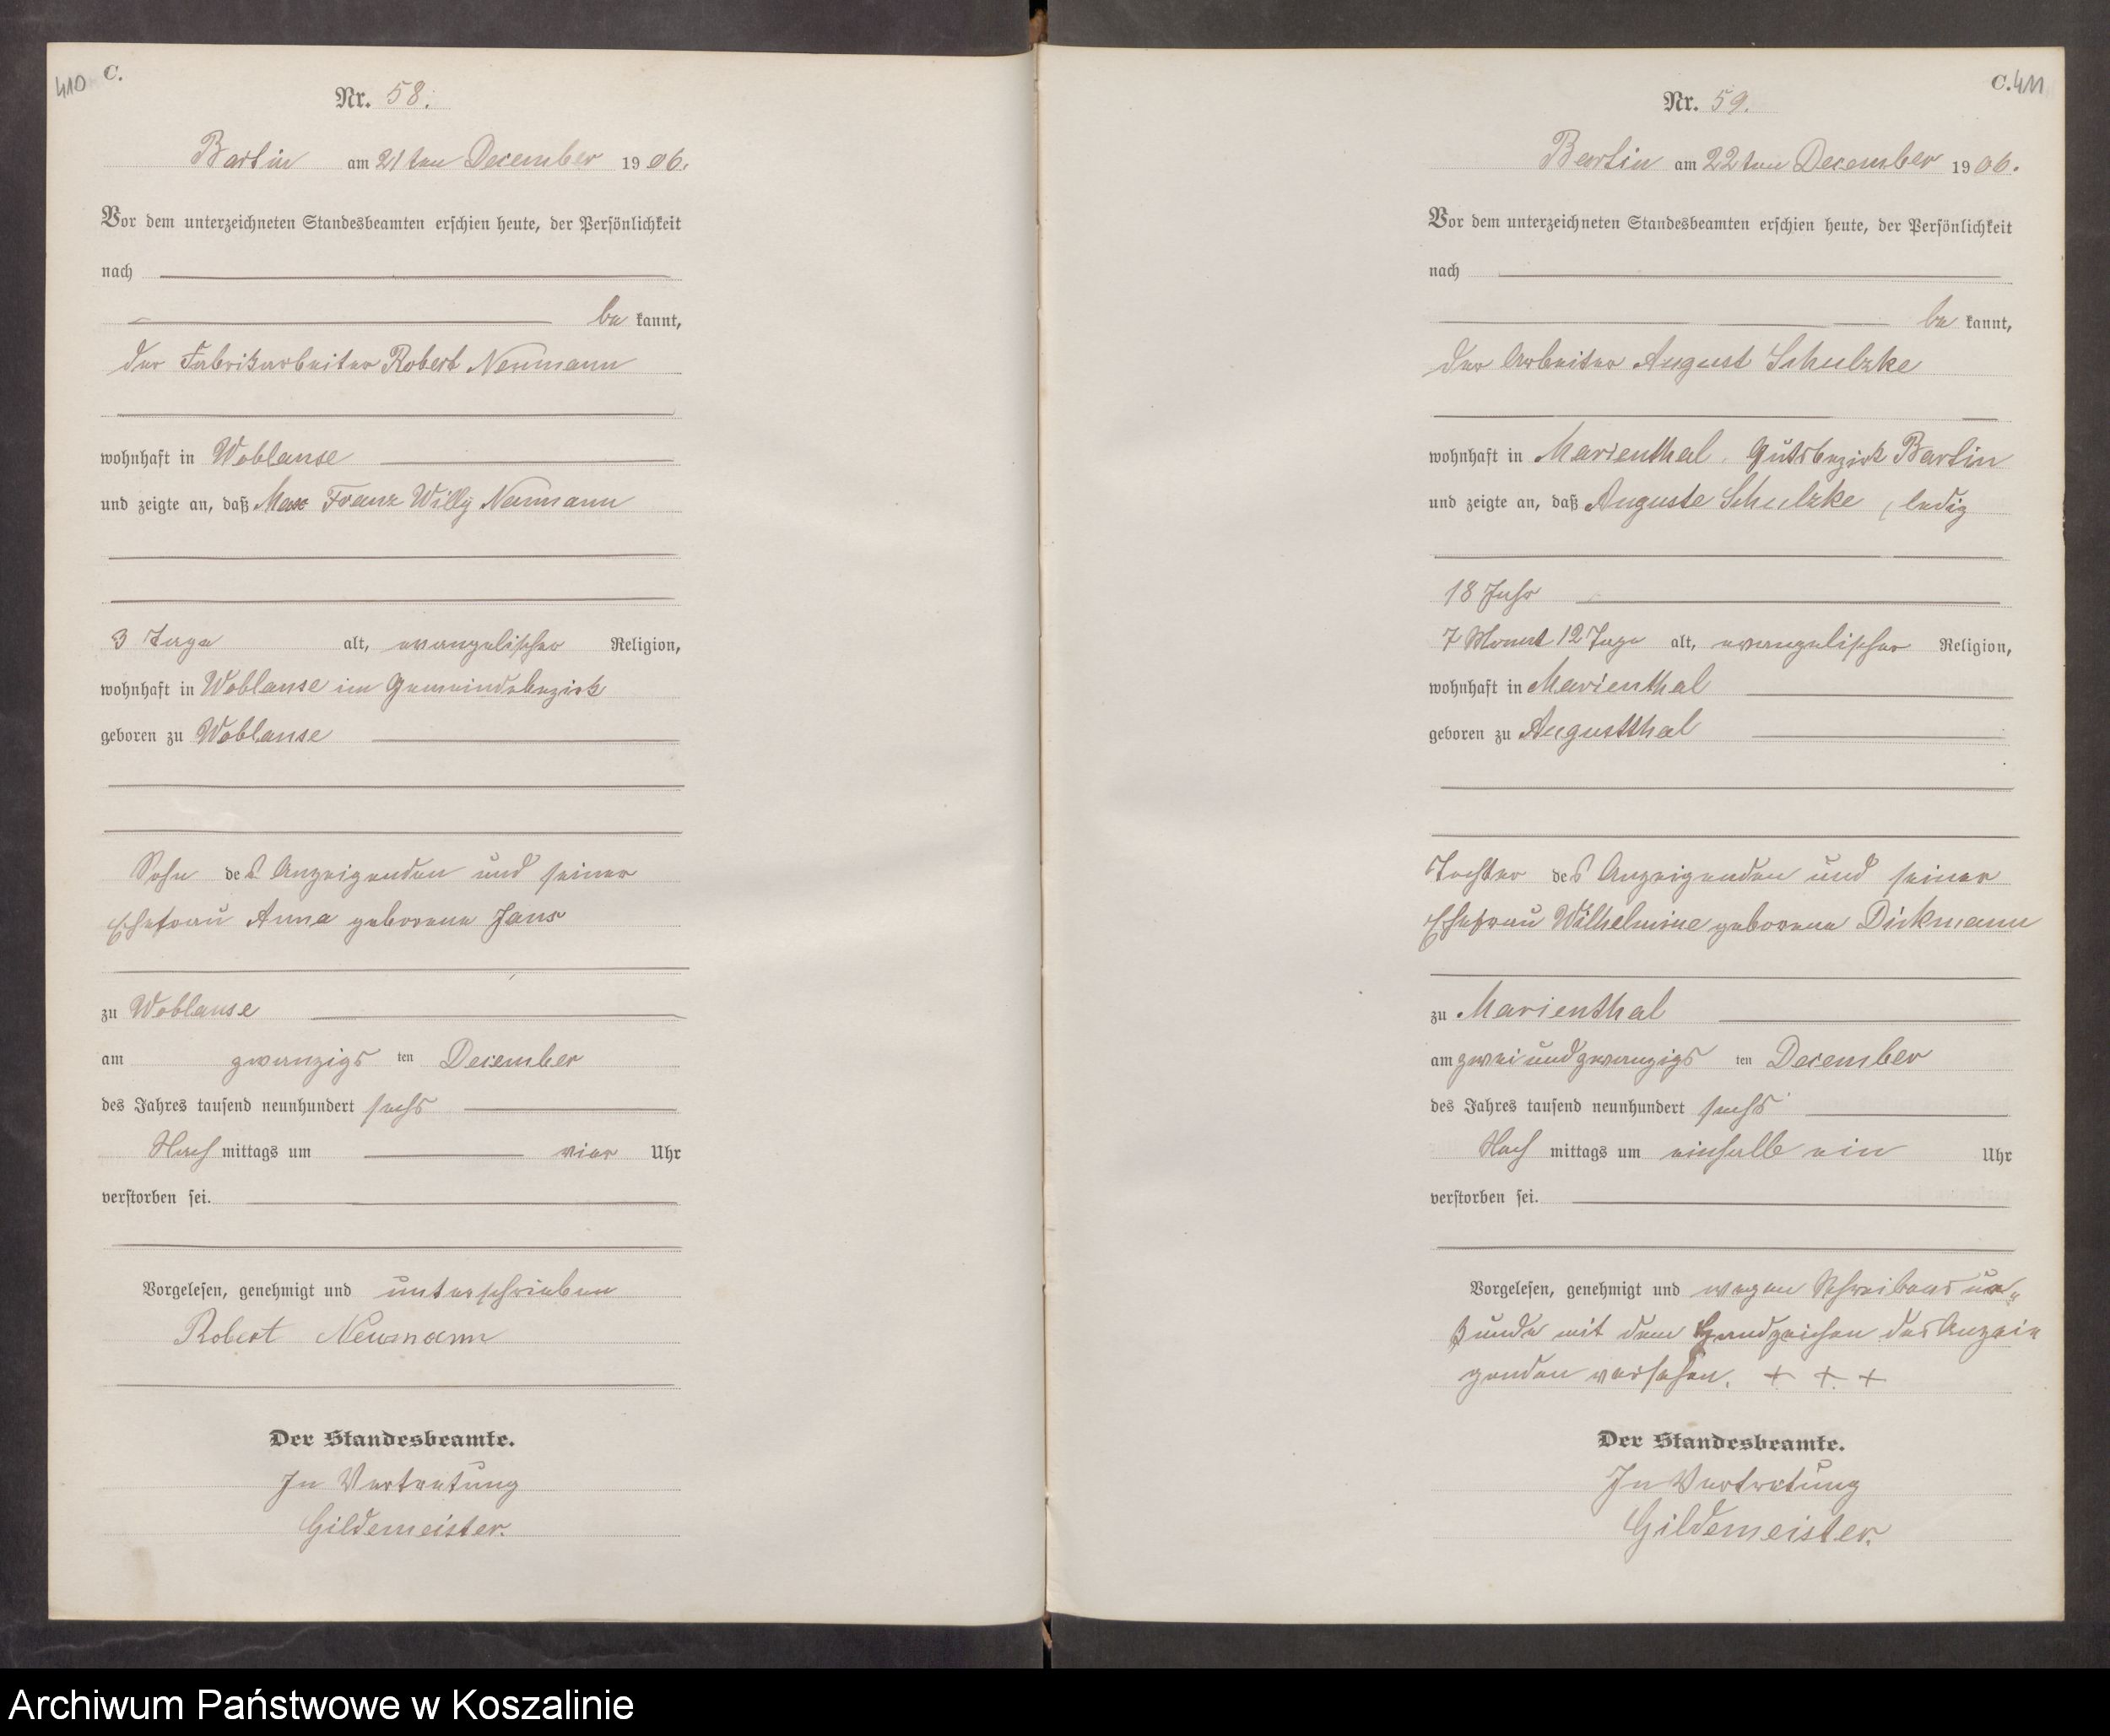 410 C.
Nr. 58.
Bartin am 21ten December 1906.
Vor dem unterzeichneten Standesbeamten erschien heute, der Persönlichkeit
nach
be kannt,
der Fabrikarbeiter Robert Neumann
wohnhaft in Woblanse
und zeigte an, daß Max Franz Willy Neumann
3 Tage alt, evangelischer Religion,
wohnhaft in Woblanse im Gemeindebezirk
geboren zu Woblanse
Sohn des Anzeigenden und seiner
Ehefrau Anna geborene Jans
zu Woblanse
am zwanzigsten December
des Jahres tausend neunhundert sechs
Nach mittags um vier Uhr
verstorben sei.
Vorgelesen, genehmigt und unterschrieben
Robert Neumann
Der Standesbeamte.
In Vertretung
Gildemeister.
C. 411
Nr. 59.
Bartin am 22ten December 1906.
Vor dem unterzeichneten Standesbeamten erschien heute, der Persönlichkeit
nach
be kannt,
der Arbeiter August Schulzke
wohnhaft in Marienthal. Gutsbezirk Bartin
und zeigte an, daß Auguste Schulzke, ledig
18 Jahr
7 Monat 12 Tage alt, evangelischer Religion,
wohnhaft in Marienthal
geboren zu Augustthal
Tochter des Anzeigenden und seiner
Ehefrau Wilhelmine geborene Dickmann
zu Marienthal
am zwei und zwanzigsten December
des Jahres tausend neunhundert sechs
Nach mittags um einhalb ein Uhr
verstorben sei.
Vorgelesen, genehmigt und wegen Schreibens un-
kunde mit dem Handzeichen des Anzei
genden versehen. + + +
Der Standesbeamte.
In Vertretung
Gildemeister.
Archiwum Państwowe w Koszalinie